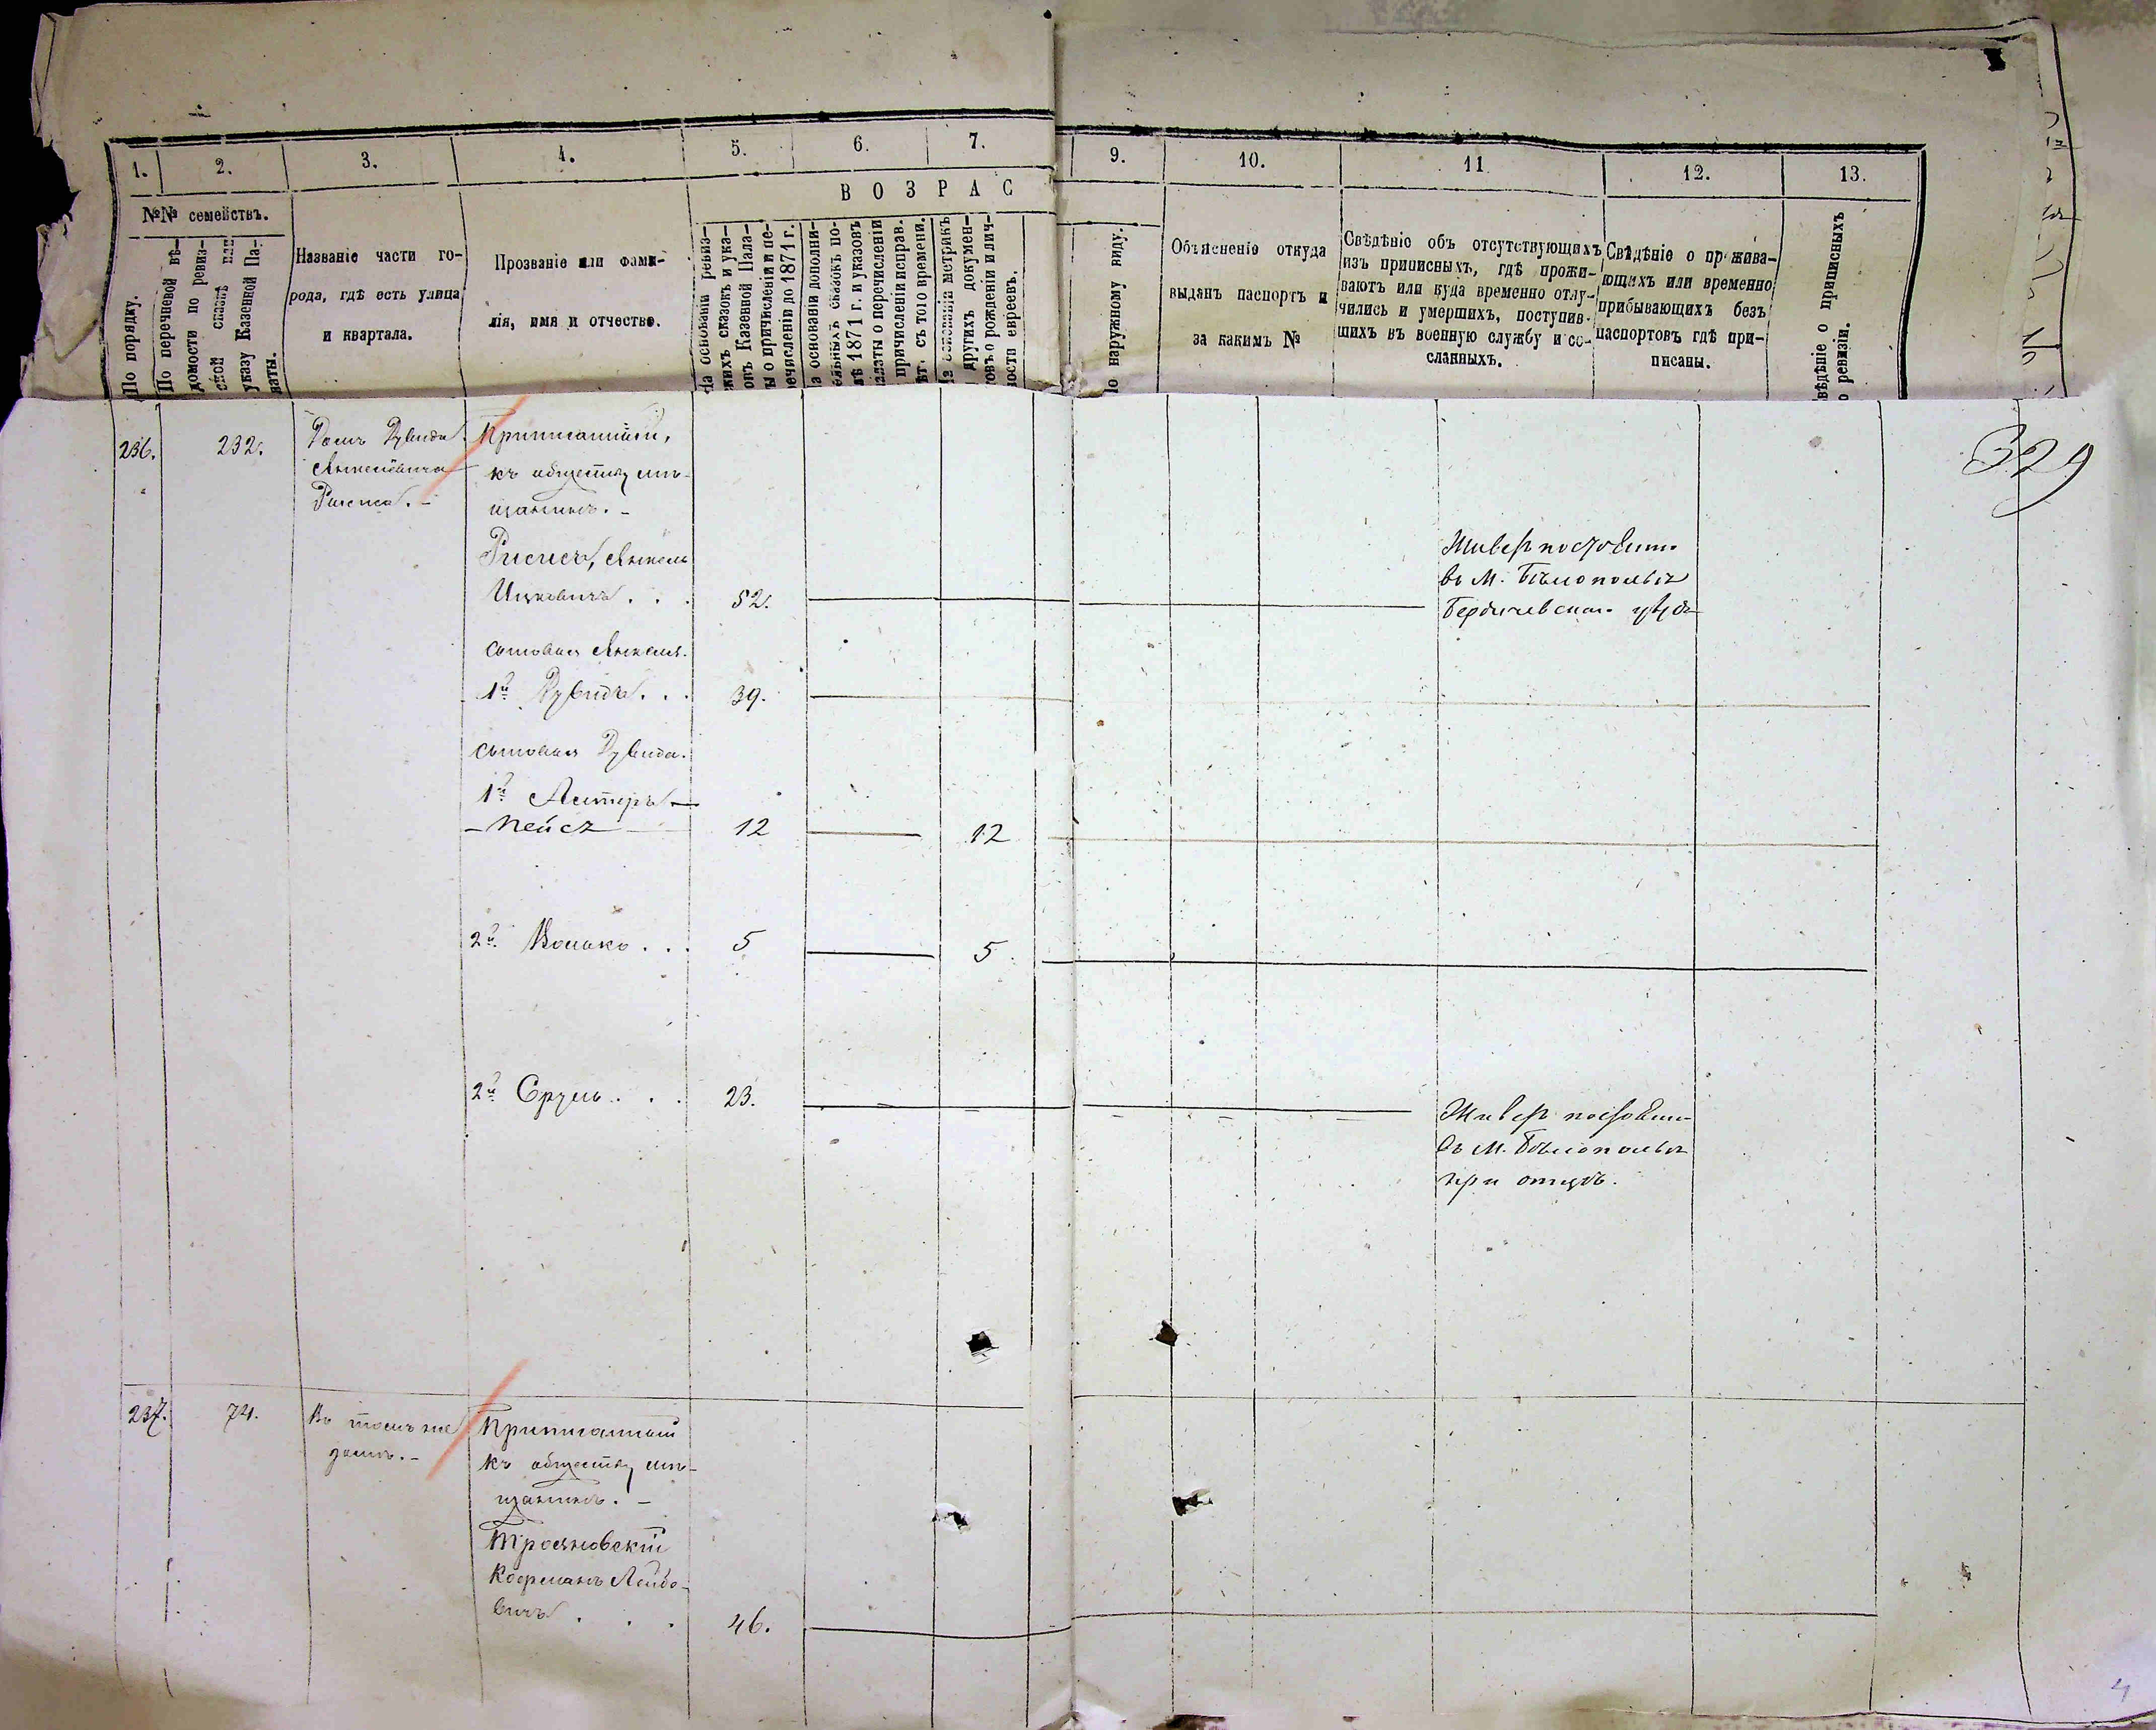 1.
2.
3.
4.
5.
6.
7.
9.
10.
11.
12.
13.
№№ семействъ.
В О З Р А С
По порядку.
По перечневой вѣ-
домости по ревиз-
ской сказкѣ или
указу Казенной Па-
латы.
Названіе части го-
рода, гдѣ есть улица
и квартала.
Прозваніе или фами-
лія, имя и отчество.
На основаніи ревиз-
скихъ сказокъ и ука-
зовъ Казенной Пала-
ты о причисленіи и пе-
речисленіи до 1871 г.
На основаніи дополни-
тельныхъ сказокъ по-
1871 г. и указовъ
палаты о перечисленіи
причисленіи исправ.
съ того времени.
На основаніи метрикъ
другихъ докумен-
товъ о рожденіи и лич-
ности евреевъ.
По наружному виду.
Объясненіе откуда
выданъ паспортъ и
за какимъ №
Свѣдѣніе объ отсутствующихъ
изъ приписныхъ, гдѣ прожи-
ваютъ или куда временно отлу-
чились и умершихъ, поступив-
шихъ въ военную службу и со-
сланныхъ.
Свѣдѣніе о прожива-
ющихъ или временно
прибывающихъ безъ
паспортовъ гдѣ при-
писаны.
Свѣдѣніе о приписныхъ
по ревизіи.
329
236.
232.
Домъ Дувида
Янкелевича
Рисиса. -
Приписанный,
къ обществу мѣ-
щанинъ. -
Рисисъ, Янкель
Ицковичъ . . .
52.
Живетъ
въ М. Бѣлопольѣ
Бердичевскаго уѣзда
сыновья Янкеля.
1й Дувидъ . . .
39.
сыновья Дувида.
1й
- Пейсъ
12
12
2й Волько . . .
5
5.
2й Сруль . . .
23.
Живетъ
въ М. Бѣлопольѣ
при отцѣ.
237.
74.
Въ томъ же
домѣ. -
Приписанный
къ обществу мѣ-
щанинъ. -
Трояновскій
Кофманъ Лейбо-
вичъ . . .
46.
4